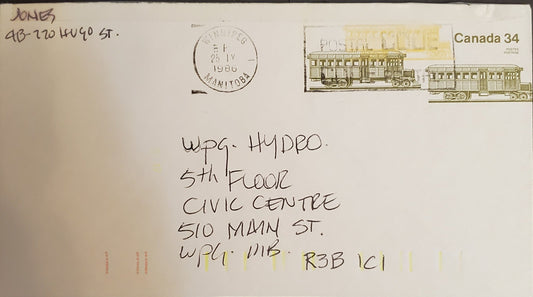 JONES
4B-220 HUGO ST.
WINNIPEG
PM
25 IV
1986
1
MANITOBA
Canada 34
POSTES
POSTAGE
Wpg. HYDRO.
5th FLOOR
CIVIC CENTRE
510 MAIN ST.
Wpg. MB.
R3B 1C1